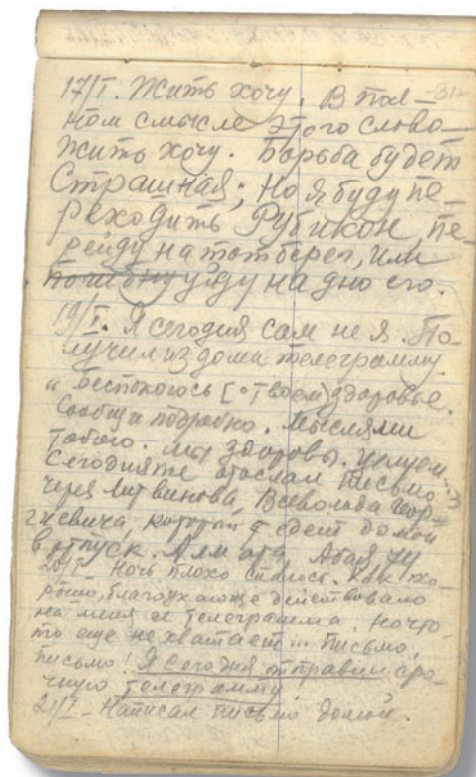 17/I. Жить хочу. В пол-
ном смысле этого слово
жить хочу. Борьба будет
страшная; Но я буду пе-
реходить Рубикон, пе
рейду на тот берег, или
погибну уйду на дно его.
19/I. Я сегодня сам не я. По-
лучил из дома телеграмму.
"Беспокоюсь [о твоем] здоровье.
Сообщи подробно. Мыслями
тобою. Мы здоровы. Целуем..."
Сегодня же отослал письмо
через Литвинова, Всеволода Геор-
гиевича, который едет домой
в отпуск. Алма ата Абая 74
20/I Ночь плохо спалось. Как хо-
рошо, благоухающе действовало
на меня ее телеграмма. Но что
то еще не хватает... Письмо,
письмо! Я сегодня отправил сро-
чную телеграмму.
21/I - Написал письмо домой.